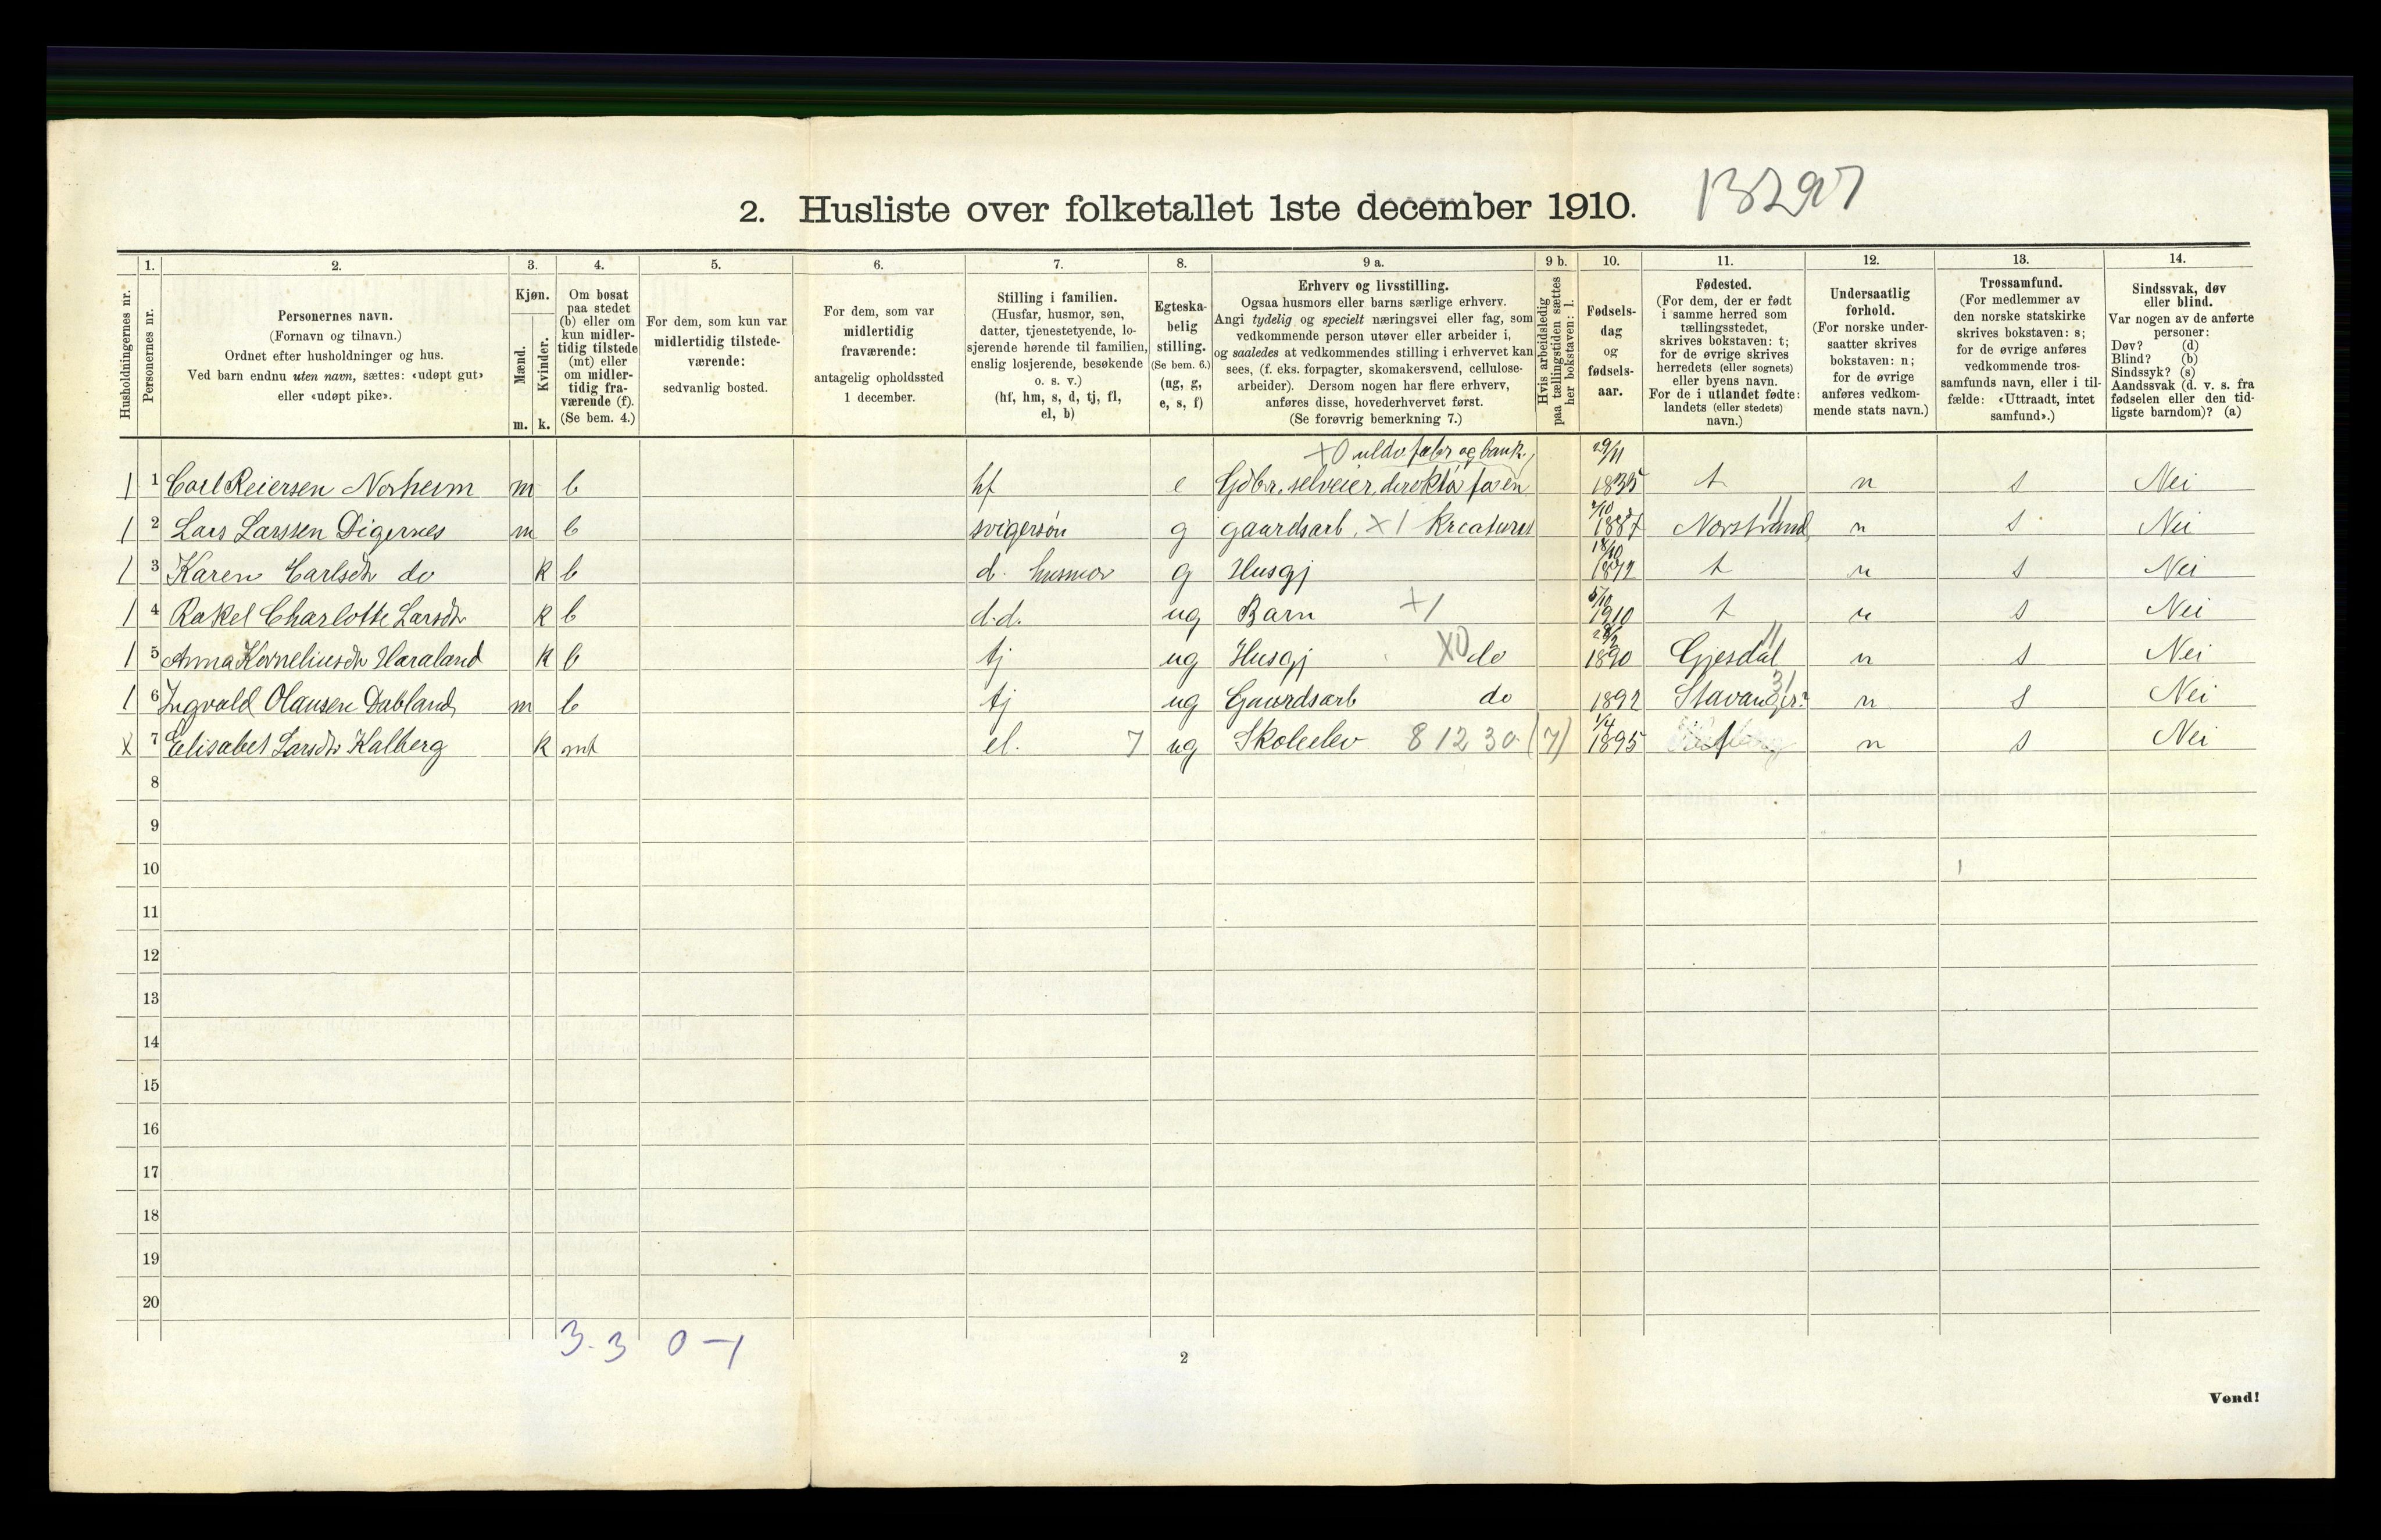 2. Husliste over folketallet 1ste december 1910. 13297
Husholdningernes nr.
1. Personernes nr.
2. Personernes navn.
(Fornavn og tilnavn.)
Ordnet efter husholdninger og hus.
Ved barn endnu uten navn, sættes: «udøpt gut»
eller «udøpt pike».
3. Kjøn.
Mænd. m.
Kvinder. k.
4. Om bosat
paa stedet
(b) eller om
kun midler-
tidig tilstede
(mt) eller
om midler-
tidig fra-
værende (f).
(Se bem. 4.)
5. For dem, som kun var
midlertidig tilstede-
værende:
sedvanlig bosted.
6. For dem, som var
midlertidig
fraværende:
antagelig opholdssted
1 december.
7. Stilling i familien.
(Husfar, husmor, søn,
datter, tjenestetyende, lo-
sjerende hørende til familien,
enslig losjerende, besøkende
o. s. v.)
(hf, hm, s, d, tj, fl,
el, b)
8. Egteska-
belig
stilling.
(Se bem. 6.)
(ug, g,
e, s, f)
9 a. Erhverv og livsstilling.
Ogsaa husmors eller barns særlige erhverv.
Angi tydelig og specielt næringsvei eller fag, som
vedkommende person utøver eller arbeider i,
og saaledes at vedkommendes stilling i erhvervet kan
sees, (f. eks. forpagter, skomakersvend, cellulose-
arbeider). Dersom nogen har flere erhverv,
anføres disse, hovederhvervet først.
(Se forøvrig bemerkning 7.)
9 b. Hvis arbeidsledig
paa tællingstiden sættes
her bokstaven: l.
10. Fødsels-
dag
og
fødsels-
aar.
11. Fødested.
(For dem, der er født
i samme herred som
tællingsstedet,
skrives bokstaven: t;
for de øvrige skrives
herredets (eller sognets)
eller byens navn.
For de i utlandet fødte:
landets (eller stedets)
navn.)
12. Undersaatlig
forhold.
(For norske under-
saatter skrives
bokstaven: n;
for de øvrige
anføres vedkom-
mende stats navn.)
13. Trossamfund.
(For medlemmer av
den norske statskirke
skrives bokstaven: s;
for de øvrige anføres
vedkommende tros-
samfunds navn, eller i til-
fælde: «Uttraadt, intet
samfund».)
14. Sindssvak, døv
eller blind.
Var nogen av de anførte
personer:
Døv? (d)
Blind? (b)
Sindssyk? (s)
Aandssvak (d. v. s. fra
fødselen eller den tid-
ligste barndom)? (a)
X0 uldv.fabr og bank 29/11
1 1 Carl Reiersen Norheim m b hf e Gdbr. selveier, direktør 1835 t n s Nei
1 2 Lars Larssen Digernes m b svigersøn g gaardsarb. X1 Kreaturst 1887 Norstrand n s Nei
1 3 Karen Carlsdtr do k b d. husmor g Husgj 1872 t n s Nei
1 4 Rakel Charlotte Larsdtr k b d.d. ug Barn X1 5/10 1910 t n s Nei
1 5 Anna Korneliusdtr Haraland k b tj ug Husgj X0 do 1890 Gjesdal n s Nei
1 6 Ingvald Olausen Dabland m b tj ug Gaardsarb do 1892 Stavanger? 31 n s Nei
x 7 Elisabet Larsdtr Kalberg k mt el. 7 ug Skoleelev 8 12 30 (7) 1/4 1895 t n s Nei
8
9
10
11
12
13
14
15
16
17
18
19
20
3. 3 0 – 1
2
Vend!